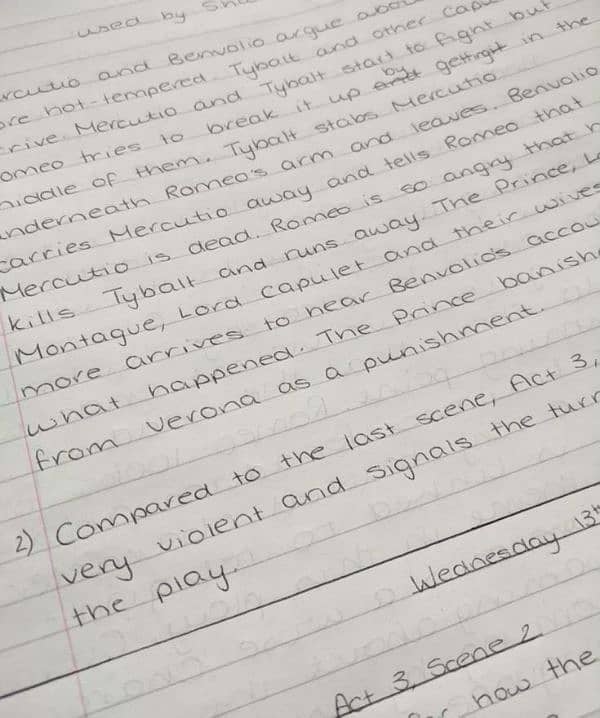 used by
and Benvolio argue
hot-tempered Tybalt and other
Mercutio and Tybalt start to fight but
tries to break it up by getting in the
of them. Tybalt stabs Mercutio
underneath Romeo's arm and leaves. Benvolio
carries Mercutio away and tells Romeo that
Mercutio is dead. Romeo is so angry that
kills Tybalt and runs away. The Prince,
Montague, Lord Capulet and their wives
more arrives to hear Benvolio's
what happened. The Prince
from Verona as a punishment.
2) Compared to the last scene, Act 3,
very violent and signals the
the play.
Wednesday 13th
Act 3, Scene 2
how the